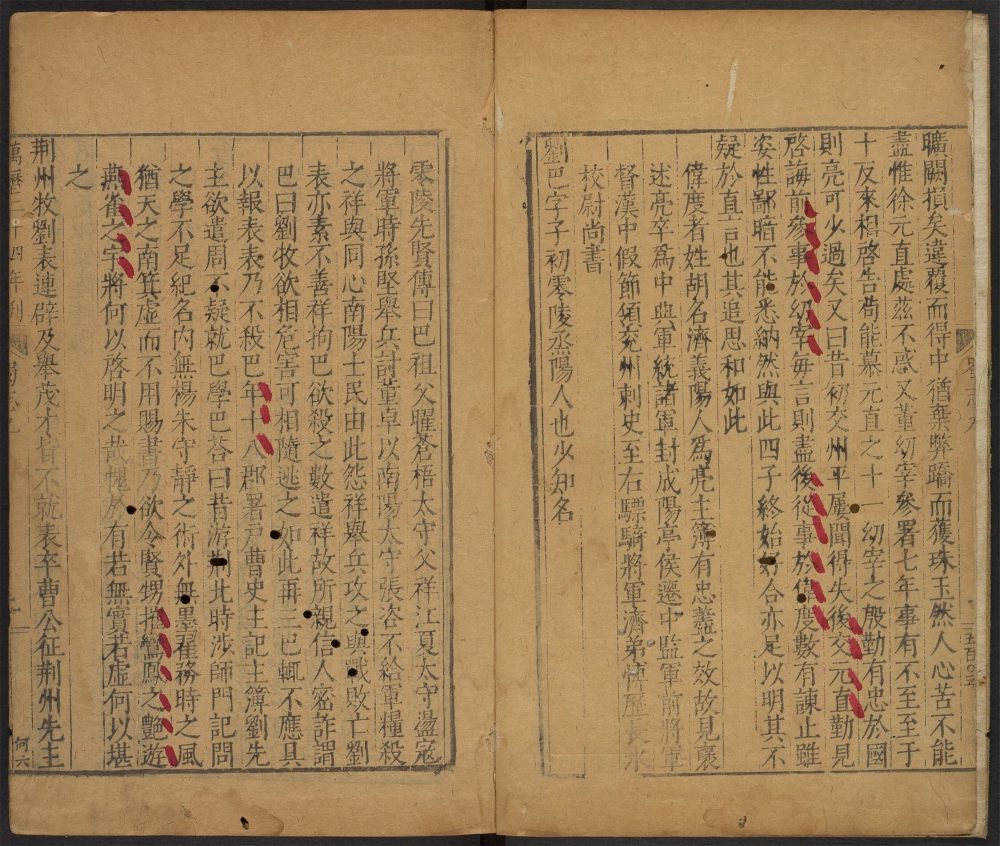 曠闕損矣違覆而得中猶棄弊蹻而獲珠玉然人心苦不能
盡惟徐元直處茲不惑又董幼宰參署七年事有不至至于
十反來相啓告苟能慕元直之十一幼宰之殷勤有忠於國
則亮可少過矣又曰昔初交州平屢聞得失後交元直勤見
啓誨前參事於幼宰每言則盡後從事於偉度數有諫止雖
姿性鄙暗不能悉納然與此四子終始好合亦足以明其不
疑於直言也其追思和如此
偉度者姓胡名濟義陽人爲亮主簿有忠藎之效故見襃
述亮卒爲中典軍統諸軍封成陽亭侯遷中監軍前將軍
督漢中假節領兗州刺史至右驃騎將軍濟弟愽歷長水
校尉尚書
劉巴字子初零陵烝陽人也少知名
零陵先賢傳曰巴祖父曜蒼梧太守父祥江夏太守盪寇
將軍時孫堅舉兵討董卓以南陽太守張咨不給軍糧殺
之祥與同心南陽士民由此怨祥舉兵攻之與戰敗亡劉
表亦素不善祥拘巴欲殺之數遣祥故所親信人密詐謂
巴曰劉牧欲相危害可相隨逃之如此再三巴輒不應具
以報表表乃不殺巴年十八郡署戸曹史主記主簿劉先
主欲遣周不疑就巴學巴荅曰昔游荆北時涉師門記問
之學不足紀名內無楊朱守靜之術外無墨翟務時之風
猶天之南箕虛而不用賜書乃欲令賢甥摧鸞鳳之艶遊
燕雀之宇將何以啓明之哉愧於有若無實若虛何以堪
之
荆州牧劉表連辟及舉茂才皆不就表卒曹公征荆州先主
萬曆二十四年刊
何六